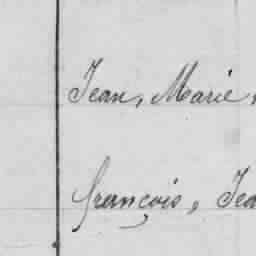 Jean, Marie,
françois, Jea